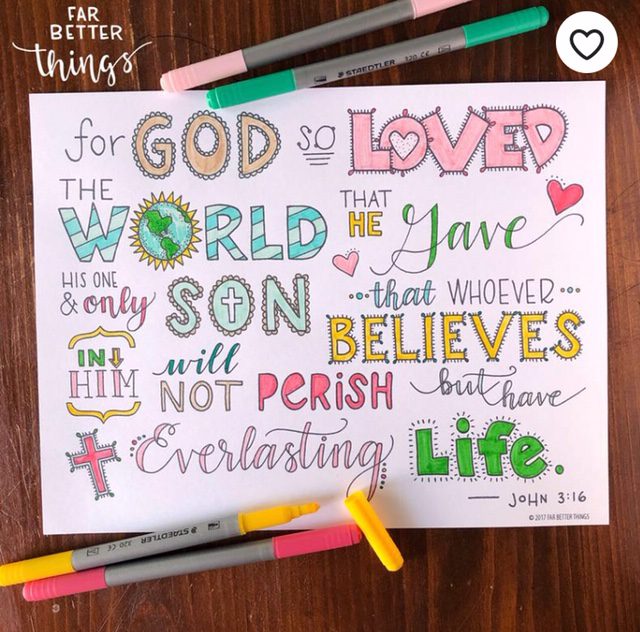 FAR
BETTER
things
STAEDTLER 320 CE
for GOD so LOVED
THE WORLD
THAT HE Gave
HIS ONE & only SON
that WHOEVER
BELIEVES
IN HIM
will NOT PERISH
but have
Everlasting Life.
JOHN 3:16
© 2017 FAR BETTER THINGS
STAEDTLER 320 CE
320 CE